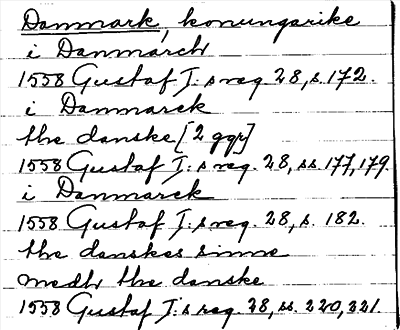 Danmark, konungarike
i Danmarch
1558 Gustaf I:s reg. 28, s. 172.
i Danmarck
the danske [2 ggr]
1558 Gustaf I:s reg. 28, ss. 177, 179.
i Danmarck
1558 Gustaf I:s reg. 28, s. 182.
the danskes sinne
medh the danske
1558 Gustaf I:s reg. 28, ss. 220, 221.